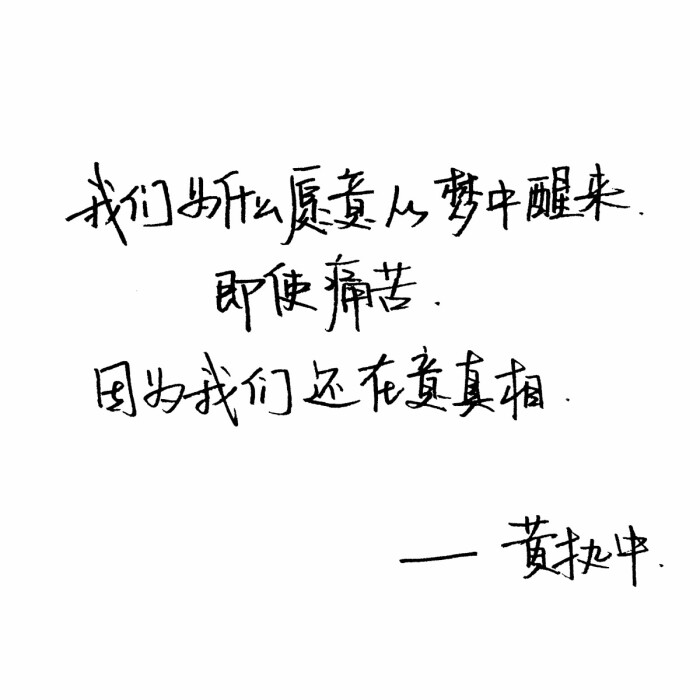 我们为什么愿意从梦中醒来.
即使痛苦.
因为我们还在意真相.
——黄执中.